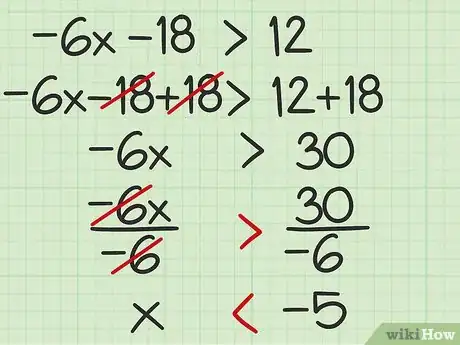 -6x -18 > 12
-6x-18+18 > 12+18
-6x > 30
-6x/-6 > 30/-6
x < -5
wikiHow